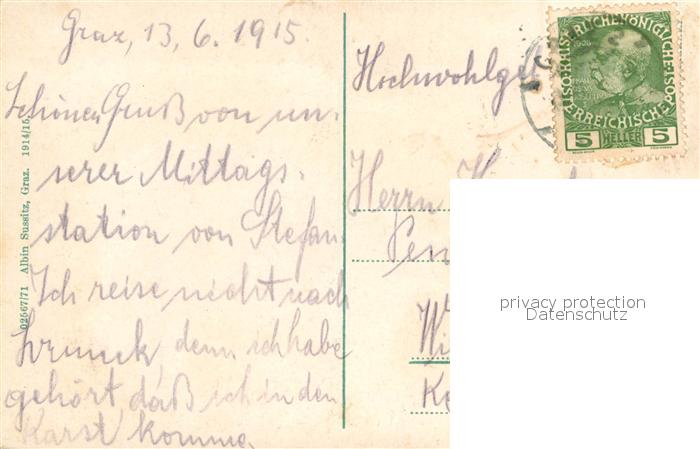 Graz, 13. 6. 1915.
Schönen Gruß von un-
serer Mittags-
station von Stefan.
Ich reise nicht nach
denn ich habe
gehört daß ich in den
Karst komme.
02567/71 Albin Sussitz, Graz. 1914/15
Hochwohlgeb
Herrn
KAISERLICHE KÖNIGLICHE
ÖSTERREICHISCHE POST
1908
5 HELLER 5
privacy protection
Datenschutz